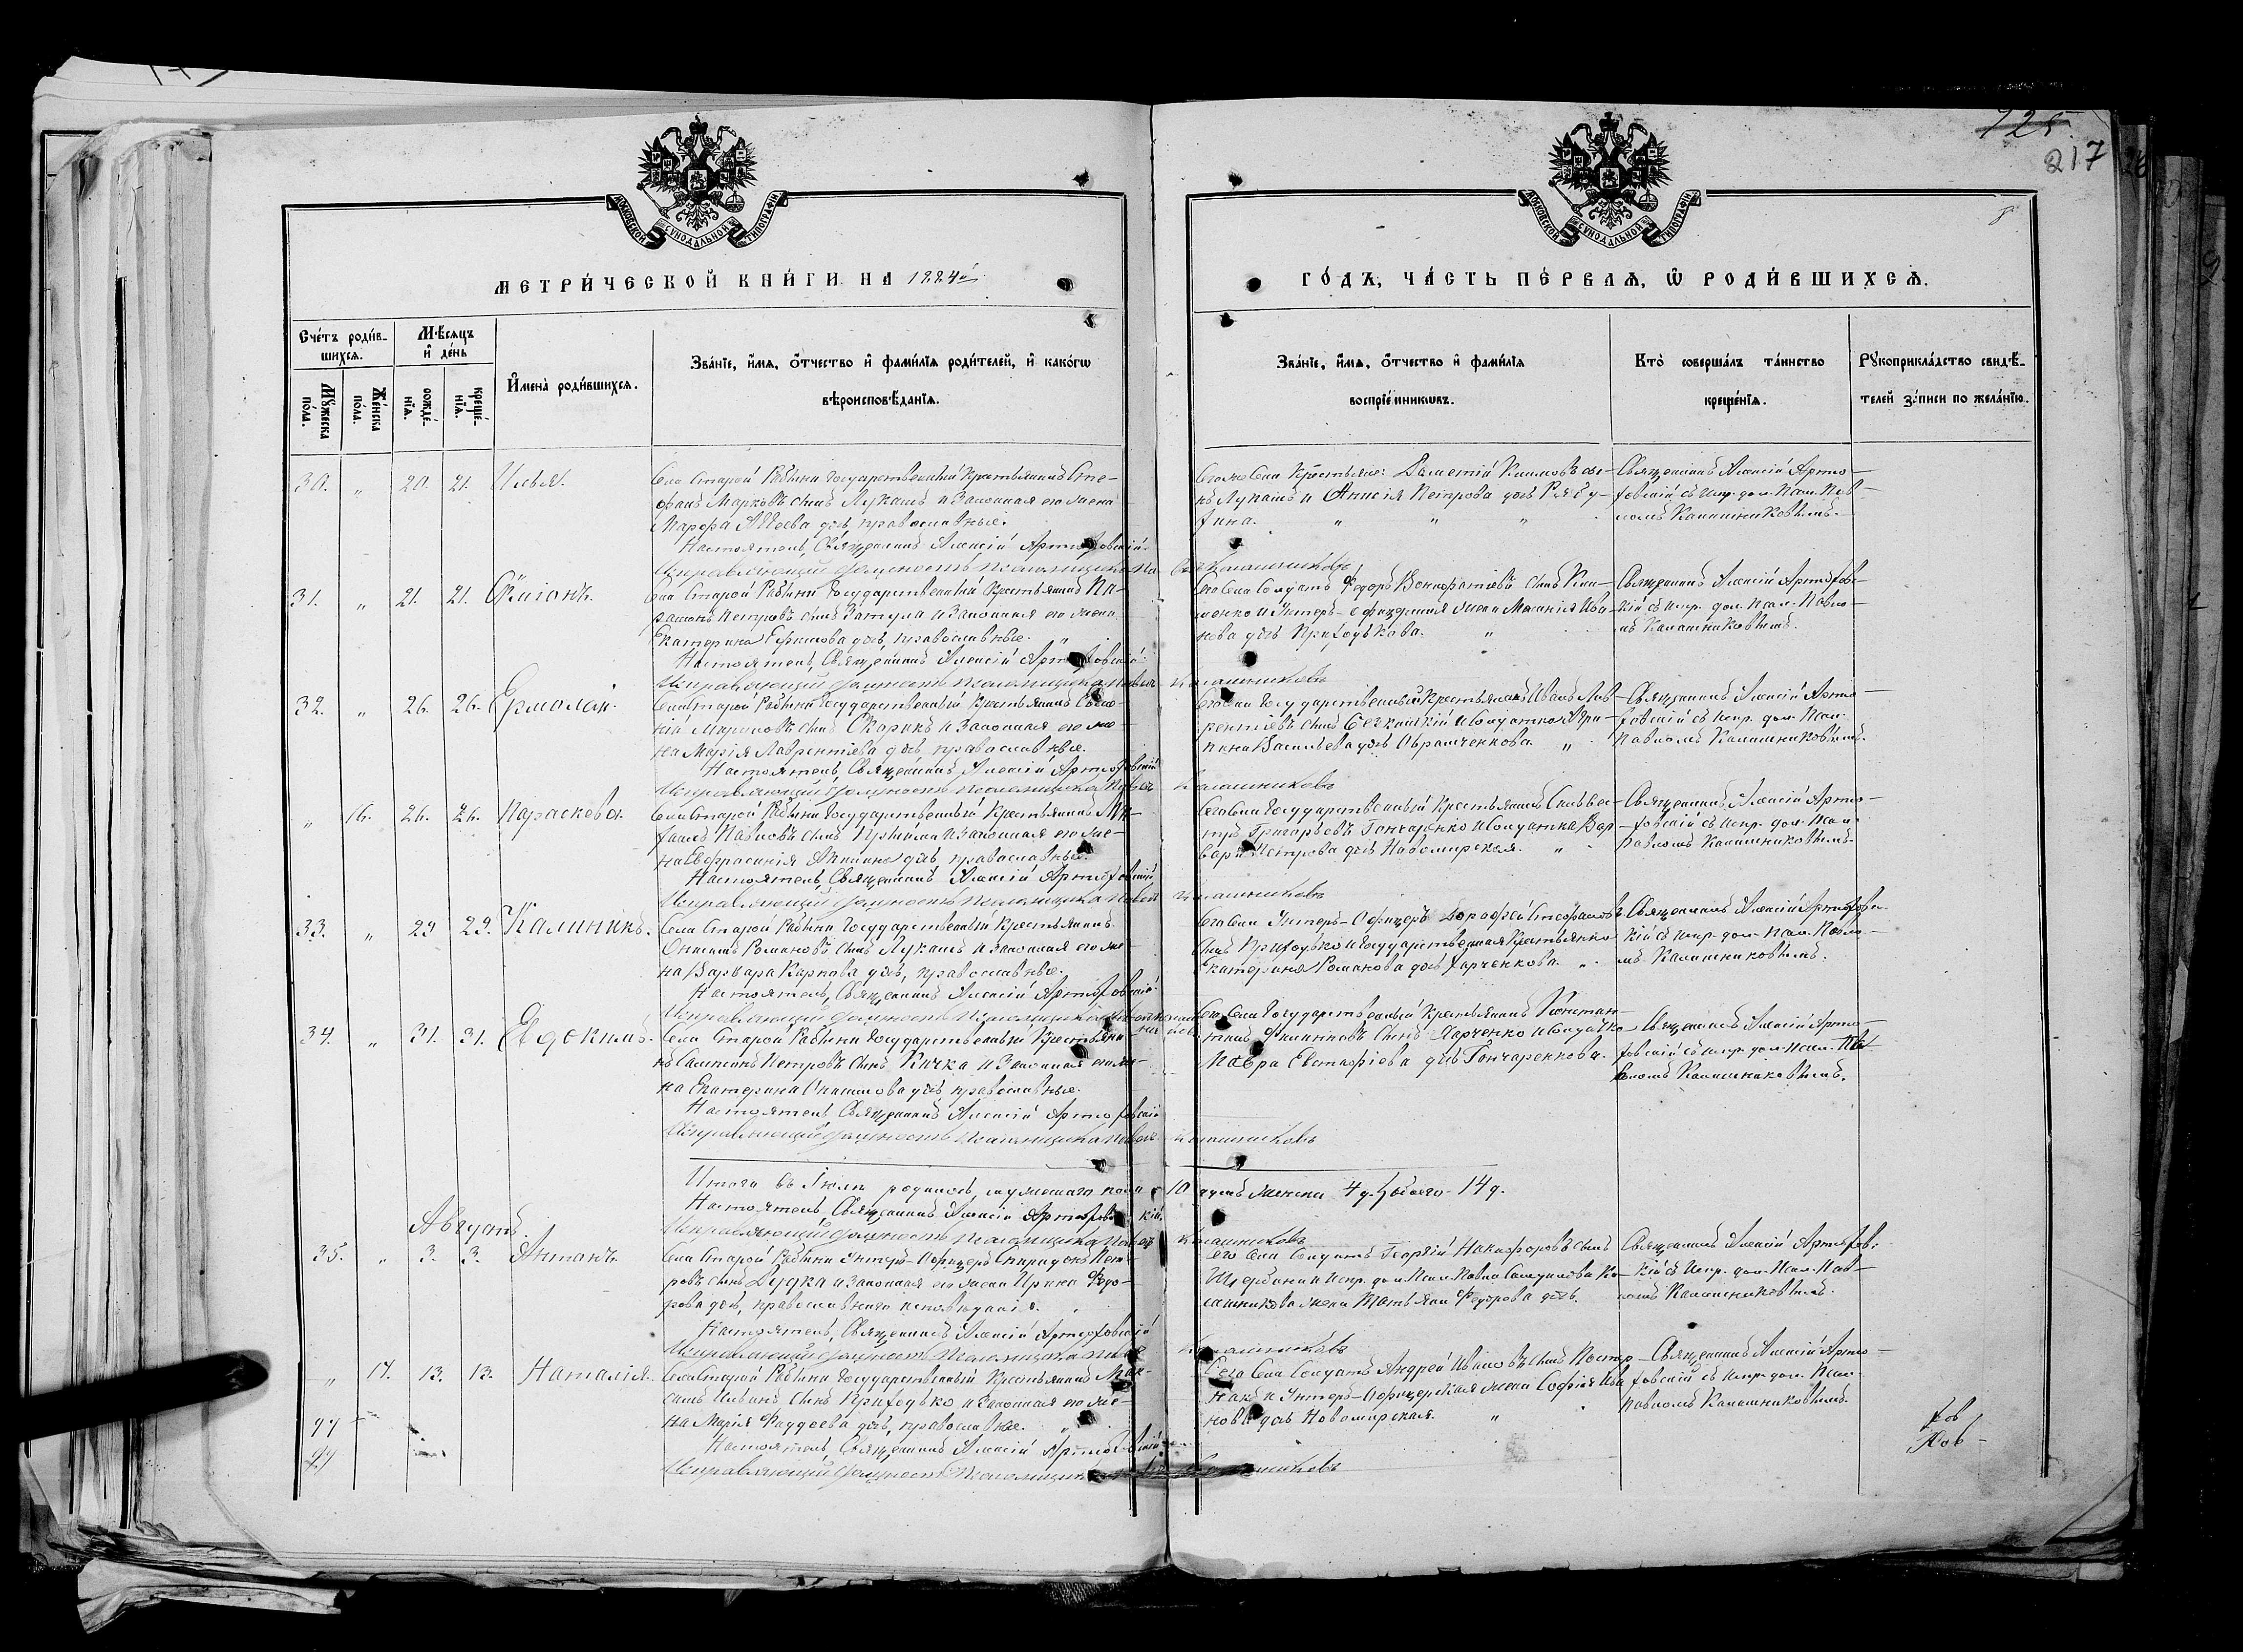 725
217
МОСКОВСКОЙ СѴНОДАЛЬНОЙ ТИПОГРАФІИ
МОСКОВСКОЙ СѴНОДАЛЬНОЙ ТИПОГРАФІИ
МЕТРИ́ЧЕСКОЙ КНИ́ГИ НА 1884й
ГО́ДЪ, ЧА́СТЬ ПЕ́РВАѦ, Ѡ҆ РОДИ́ВШИХСѦ.
Сче́тъ роди́в-
шихсѧ.
Мꙋ́жеска по́ла.
Же́нска по́ла.
Мѣ́сѧцъ
и҆ де́нь
рожде́-
нїѧ.
креще́-
нїѧ.
И҆мена̀ роди́вшихсѧ.
Зва́нїе, и҆́мѧ, ѻ҆́тчество и҆ фами́лїѧ роди́телей, и҆ како́гѡ
вѣроисповѣ́данїѧ.
Зва́нїе, и҆́мѧ, ѻ҆́тчество и҆ фами́лїѧ
воспрїе́мникѡвъ.
Кто̀ соверша́лъ та́инство
креще́нїѧ.
Рꙋкоприкла́дство свидѣ́-
телей за́писи по жела́нїю.
30. " 20. 21. Илья.
Села Старой Рябины Государственный Крестьянинъ Сте-
фанъ Марковъ сынъ Лукашъ и Законная его жена
Марфа Авдеева дчь, православные.
Настоятель, Священникъ Алексій Артюховскій
Исправляющій должность Псаломщика Па Калашниковъ
Того села Крестьяне: Дометій Климовъ сы-
нъ Лукашъ и Анисія Петрова дчь Рябу-
хина. " " "
Священникъ Алексій Артю-
ховскій съ испр. дол. Псал. Пав-
ломъ Калашниковымъ.
31. " 21. 21.
Села Старой Рябины Государственный Крестьянинъ Па-
рамонъ Петровъ сынъ Затула и Законная его жена
Екатерина Ефимова дчь, православные. "
Настоятель, Священникъ Алексій Артюховскій
Исправляющій должность Псаломщика Павелъ Калашниковъ
Сего села Солдатъ Федоръ Вонифатіевъ сынъ Кли-
менко и Унтеръ-офицерская жена Меланія Ива-
нова дчь Приходькова. "
Священникъ Алексій Артюховс-
кій съ испр. дол. Псал. Павло-
мъ Калашниковымъ.
32. " 26. 26. Ермолай.
Села Старой Рябины Государственный Крестьянинъ
Мироновъ сынъ Скорикъ и Законная его же-
на Марія Лаврентіева дчь, православные.
Настоятель, Священникъ Алексій Артюховскій
Исправляющій должность Псаломщика Павелъ Калашниковъ
Сего села Государственный Крестьянинъ Иванъ Лав-
рентіевъ сынъ и Солдатка Агри-
пина Васильева дчь Абрамченкова. "
Священникъ Алексій Артю-
ховскій съ испр. дол. Псал.
Павломъ Калашниковымъ.
" 16. 26. 26. Параскева.
Села Старой Рябины Государственный Крестьянинъ Ми-
хаилъ Павловъ сынъ и Законная его же-
на Евфросинія дчь, православные.
Настоятель, Священникъ Алексій Артюховскій
Исправляющій должность Псаломщика Павелъ Калашниковъ
Сего села Государственный Крестьянинъ Сильвес-
тръ Григорьевъ Гончаренко и Солдатка Вар-
вара Петрова дчь Новомирская. "
Священникъ Алексій Артю-
ховскій съ испр. дол. Псал.
Павломъ Калашниковымъ.
33. " 29 29. Калиникъ.
Села Старой Рябины Государственный Крестьянинъ
Онисимъ Романовъ сынъ Лукашъ и Законная его же-
на Варвара Карпова дчь, православные.
Настоятель, Священникъ Алексій Артюховскій
Исправляющій должность Псаломщика Павелъ Калашниковъ
Сего села Унтеръ-Офицеръ Дорофей Стефановъ
сынъ Приходько и Государственная Крестьянка
Екатерина Романова дчь Харченкова. "
Священникъ Алексій Артюховс-
кій съ испр. дол. Псал. Павло-
мъ Калашниковымъ.
34. " 31. 31. Евдокимъ.
Села Старой Рябины Государственный Крестьяни-
нъ Сампсонъ Петровъ сынъ Кичка и Законная его же-
на Екатерина дчь, православные.
Настоятель, Священникъ Алексій Артюховскій
Исправляющій должность Псаломщика Павелъ Калашниковъ
Сего села Государственный Крестьянинъ Констан-
тинъ Филиповъ сынъ Харченко и Солдатка
Мавра Евстафіева дчь Гончаренкова.
Священникъ Алексій Артю-
ховскій съ испр. дол. Псал. Пав-
ломъ Калашниковымъ.
Итого въ Іюлѣ родилось, мужескаго пола 10 душъ женска 4 д. обоего 14 д.
Настоятель, Священникъ Алексій Артюховскій
Исправляющій должность Псаломщика Павелъ Калашниковъ
Августъ.
35. " 3. 3. Антонъ.
Села Старой Рябины Унтеръ-Офицеръ Спиридонъ Пет-
ровъ сынъ Дудка и Законная его жена Ирина Федо-
рова дчь, православнаго исповѣданія.
Настоятель, Священникъ Алексій Артюховскій
Исправляющій должность Псаломщика Павелъ Калашниковъ
Сего села Солдатъ Георгій Никифоровъ сынъ
Щербина и испр. дол. Псал. Павла Самуилова Ка-
лашникова жена Татьяна Федорова дчь.
Священникъ Алексій Артюховс-
кій съ испр. дол. Псал. Пав-
ломъ Калашниковымъ.
" 17. 13. 13. Наталія.
Села Старой Рябины Государственный Крестьянинъ Мак-
симъ Ильинъ сынъ Приходько и Законная его же-
на Марія Фаддеева дчь, православные. "
Настоятель, Священникъ Алексій Артюховскій
Исправляющій должность Псаломщика Калашниковъ
Сего села Солдатъ Андрей сынъ
и Унтеръ-Офицерская жена Софія Ива-
нова дчь Новомирская. "
Священникъ Алексій Артю-
ховскій съ испр. дол. Псал.
Павломъ Калашниковымъ.